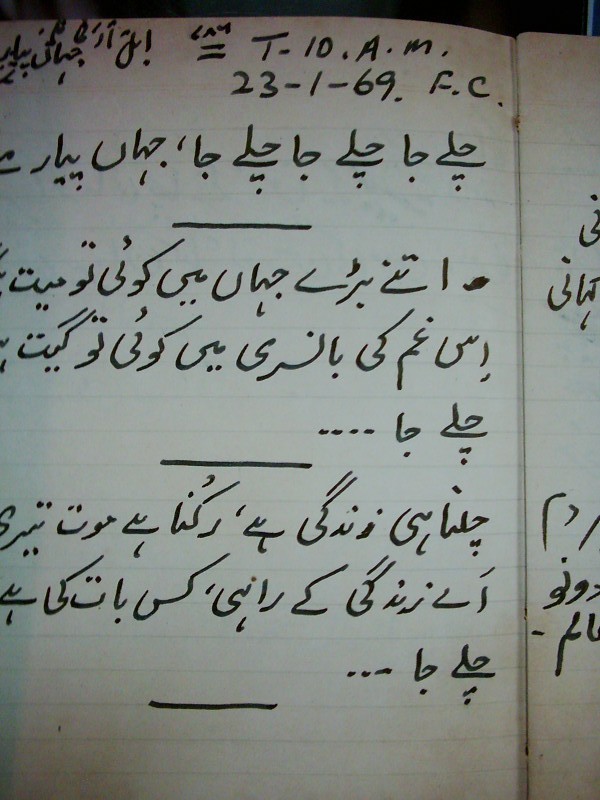 T-10.A.M.
23-1-69. F.C.
چلے جا چلے جا چلے جا، جہاں پیار
اتنے بڑے جہاں میں کوئی تو میت
اِس غم کی بانسری میں کوئی تو گیت
چلے جا ....
چلنا ہی زندگی ہے، رُکنا ہے موت تیری
اَے زندگی کے راہی، کس بات کی ہے
چلے جا ...